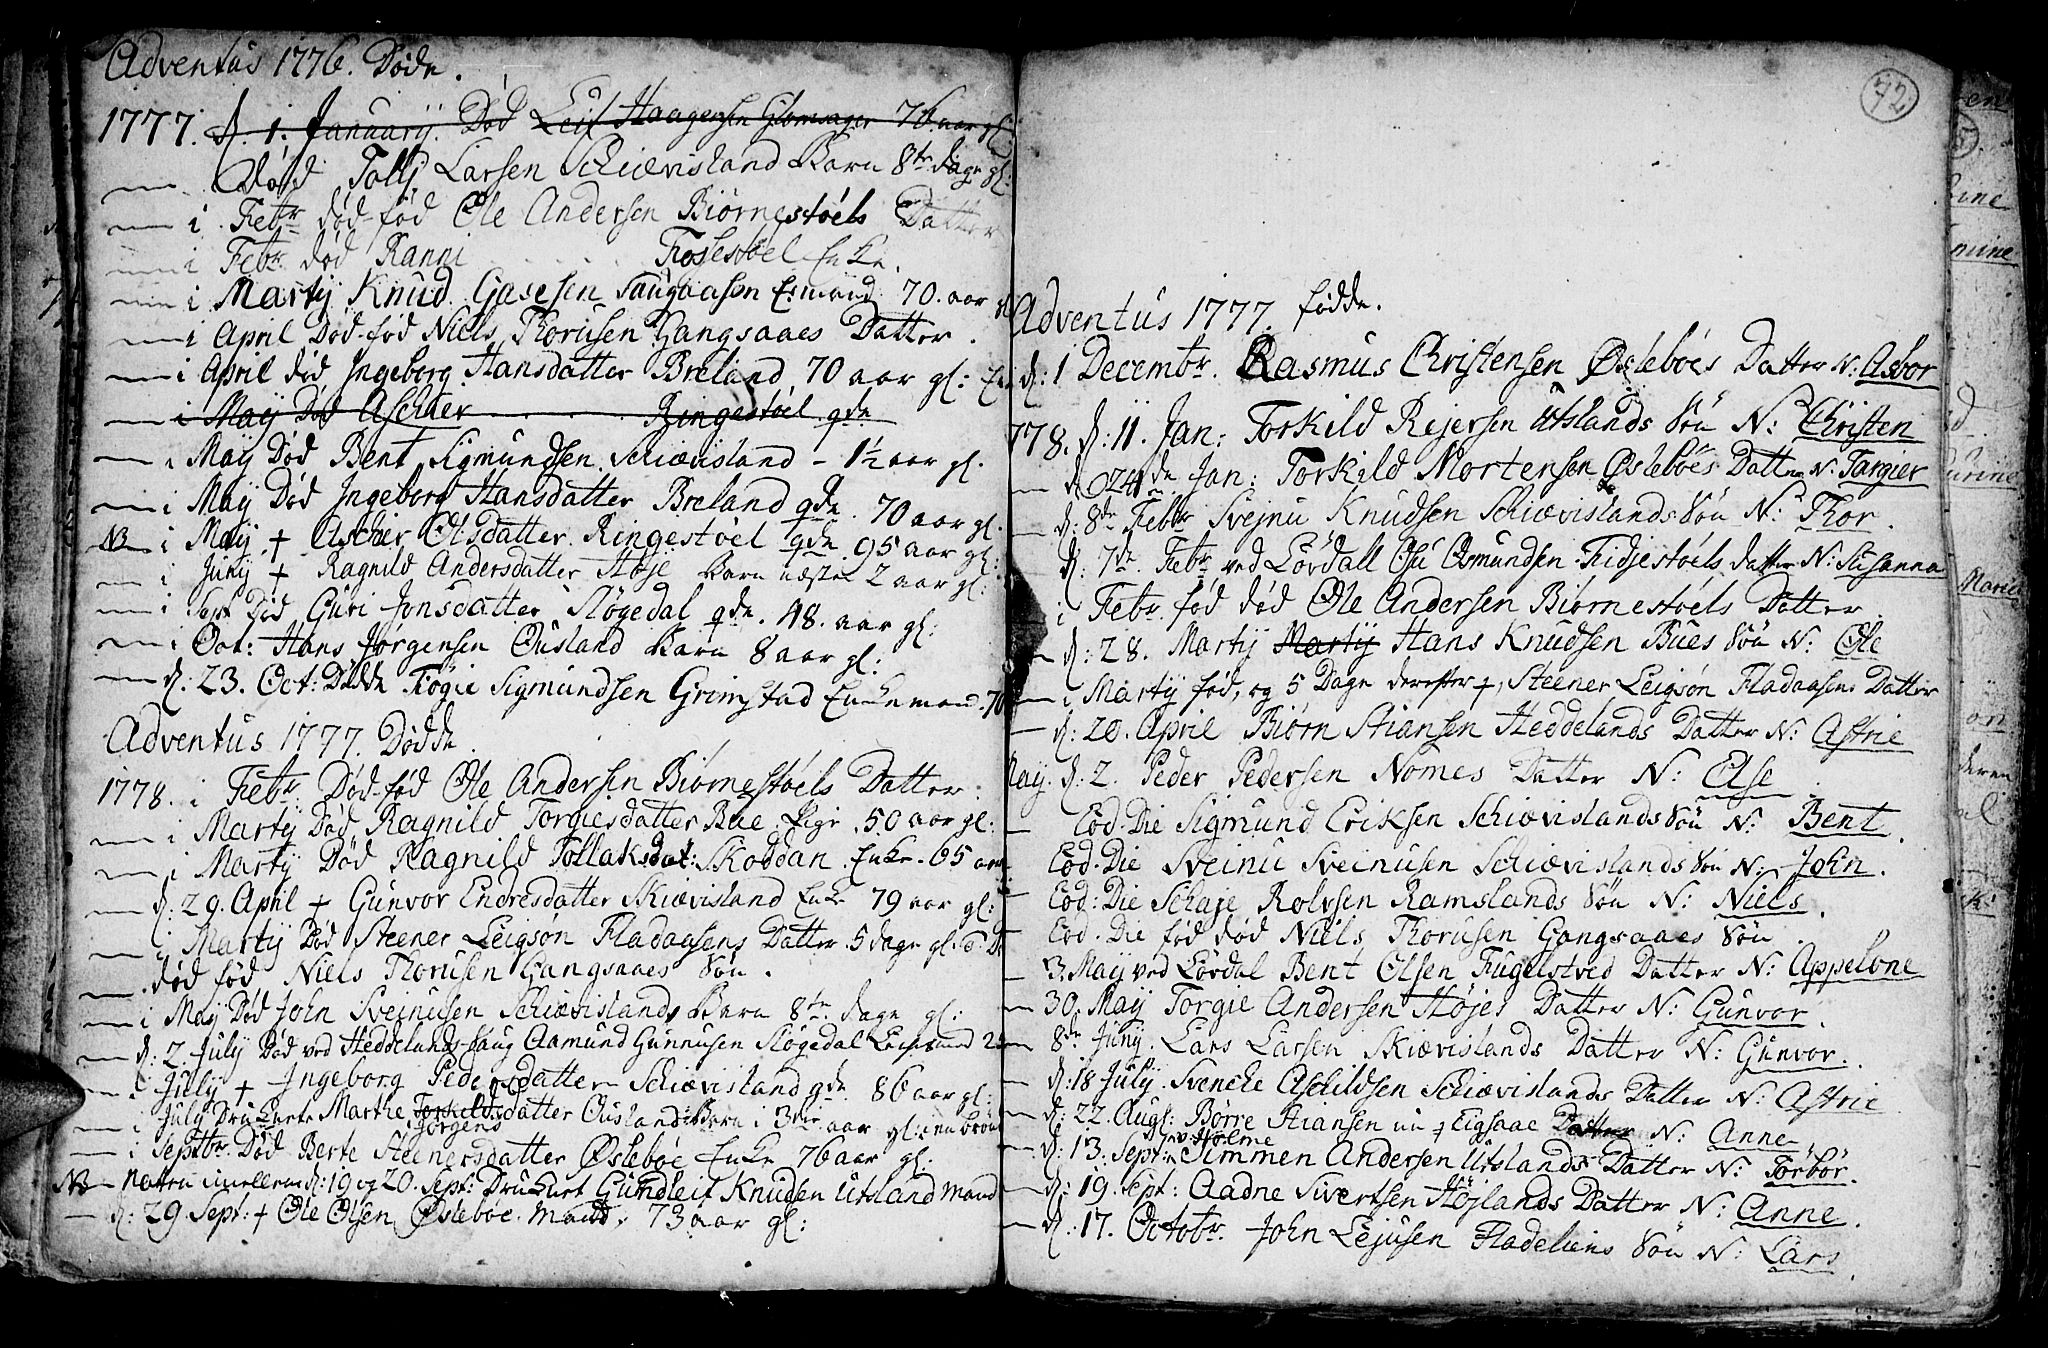 Adventus 1776. Døde.
1777. d. 1. Januarij. Død Leif Haagensen Glomsager 76 aar gl:
Død Tollj Larsen Schiævisland Barn 8te dage gl:
i Febr. død-fød Ole Andersen Biørnestøels Datter
i Febr. død Ranni . . . . . Fosestøel Enke.
i Martij Knud Gasesen Enmand 70. aar
i April Død-fød Niels Thorusen Gangsaaes Datter.
i April død Ingeborg Hansdatter Breland 70 aar gl:
i Maij Død Ascher . . . . . Ringestøel qde
i Maij Død Bent Sigmundsen Schiævisland - 1½ aar gl.
i Maij Død Ingeborg Hansdatter Breland qde. 70 aar gl.
NB i Maij + Ascher Olsdatter Ringestøel qde 95 aar gl:
i Junij + Ragnild Andersdatter Høje Barn næsten 2 aar gl:
i Sept Død Guri Jonsdatter Støgedal qde. 48. aar gl:
i Oct: Hans Jørgensen Øusland Barn 8 aar gl:
d. 23. Oct: Døde Tøgie Sigmundsen Grimstad Enkemand. 70
Adventus 1777. Dødde.
1778. i Febr. Død-fød Ole Andersen Biørnestøels Datter.
i Martij Død Ragnild Torgiesdatter Bue Pige. 50 aar gl:
i Martij Død Ragnild Tollaksdat: Skoddan Enke. 65 aar
d: 29. April + Gunvor Endresdatter Skiævisland Enke 79 aar gl:
i Martij Død Steener Leigsøn Fladaasens Datter. 5 dage gl.
død fød Niels Thorusen Gangsaaes Søn.
i Maij Død John Sveinusen Schiævislands Barn 8te dage gl:
d: 2 Julij Død ved Heddelands-haug Aamund Gunnusen Støgedal
i Julij + Ingeborg Pedersdatter Schiævisland qde 86 aar gl:
i Julij Druknete Marthe Torkildsdatter Øusland Barn i 3die aar gl:
Jørgens
i Septbr. Død Berte Steenersdatter Øslebøe Enke 76 aar gl:
NB Natten imellem d: 19 og 20. Sept: Druknet Gundleif Knudsen Utsland Mand
d: 29 Sept: + Ole Olsen Øslebøe. Mand. 73 aar gl:
72
Adventus 1777. fødde.
d: 1 Decembr. Rasmus Christensen Øslebøes Datter N: Asbor
778. d: 11. Jan: Torkild Rejersen Utslands Søn N: Christen
d 24de Jan: Torkild Mortensen Øslebøes Datter N: Targier
d: 8de Febr Svejnu Knudsen Schiævislands Søn N: Thor.
d: 7de Febr ved Lovdall Osmundsen Fidjestøels datter N: Susanna
i Febr. fød død Ole Andersen Biørnestøels Datter.
d: 28. Martij Martij Hans Knudsen Bues Søn N: Ole
i Martij fød, og 5 Dage derefter +, Steener Leigsøn Fladaasens Datter
d: 20. April Biørn Stiansen Heddelands Datter N: Astrie
Maij: d: 2. Peder Pedersen Nomes Datter N: Else
Eod: Die Sigmund Eriksen Schiævislands Søn N: Bent.
Eod: Die Sveinu Sveinusen Schiævislands Søn N: John.
Eod: Die Schaje Rolvsen Ramslands Søn N: Niels.
Eod: Die fød død Niels Thorusen Gangsaaes Søn.
3. Maij ved Lovdal Bent Olsen Fugelstved Datter N: Appelone
30. Maij Torgie Andersen Højes Datter N: Gunvor.
8de Junij. Lars Larsen Skiævislands Datter N: Gunvor.
d: 18 Julij. Svenche Aschildsen Schiævislands Datter N: Astrie
d: 22. Augl: Børre Stiansen Eigsaae Datter N: Anne
v. Holme
d: 13. Sept: Simmen Andersen Utslands Datter N: Torbor.
d: 19. Sept: Aadne Sivertsen Højlands Datter N: Anne.
d: 17. Octobr. John Lejusen Fladeliens Søn N: Lars.